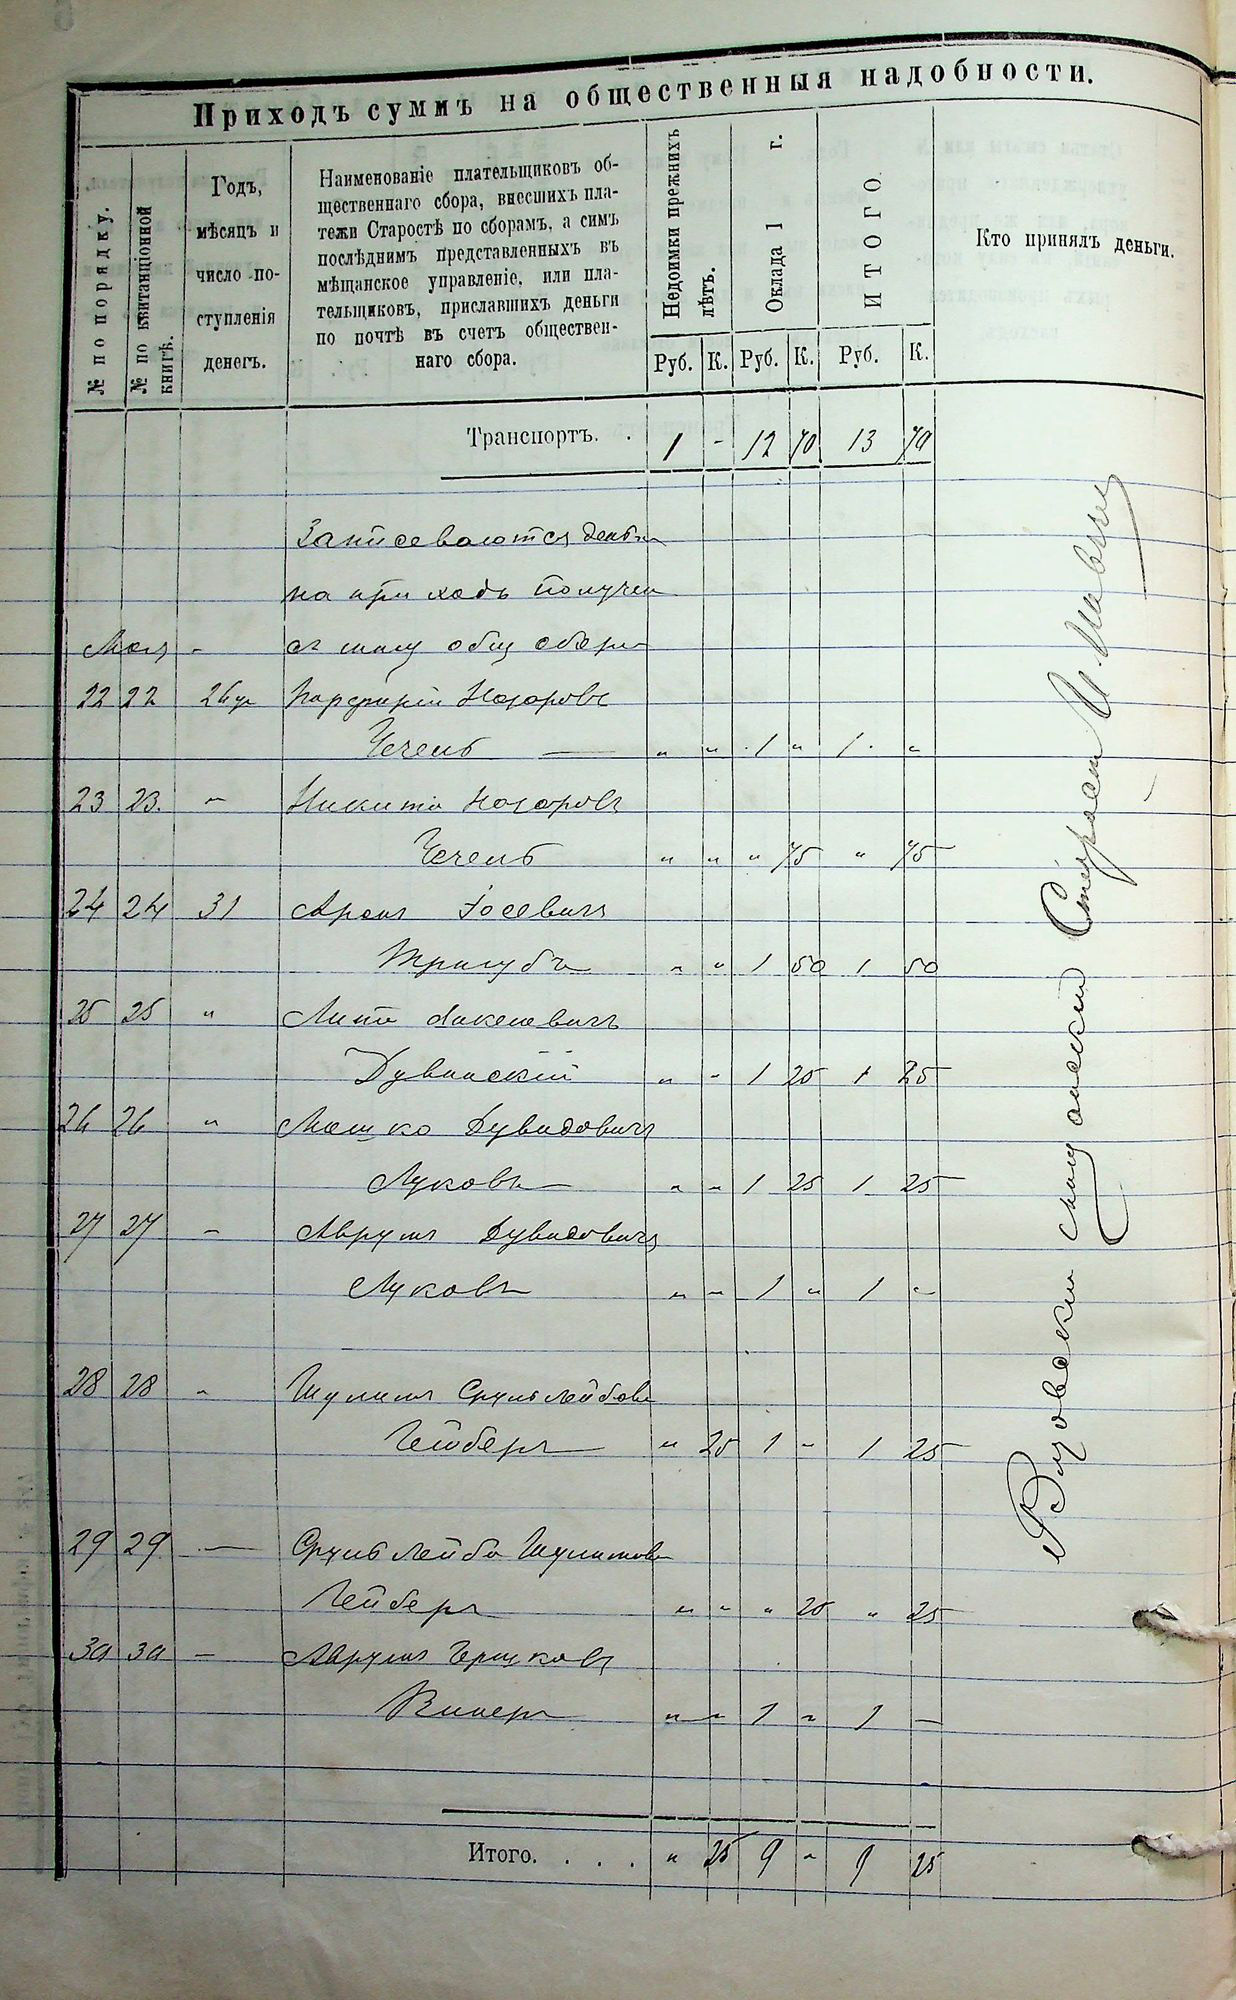 Приходъ суммъ на общественныя надобности.
№ по порядку.
№ по квитанціонной книгѣ.
Годъ,
мѣсяцъ и
число по-
ступленія
денегъ.
Наименованіе плательщиковъ об-
щественнаго сбора, внесшихъ пла-
тежи Старостѣ по сборамъ, а симъ
послѣднимъ представленныхъ въ
мѣщанское управленіе, или пла-
тельщиковъ, приславшихъ деньги
по почтѣ въ счетъ обществен-
наго сбора.
Недоимки прежнихъ лѣтъ.
Оклада 1 г.
ИТОГО.
Кто принялъ деньги.
Руб. К. Руб. К. Руб. К.
Транспортъ. . 1 - 12 70 13 70
Записеваются деньги
на приходъ получен
общ
Мая -
22 22 26 Порфирій Назаровъ
Чечель — " " 1 " 1 "
23 23. " Никита Назаровъ
Чечель " " " 75 " 75
24 24 31 Аронъ Іосевичъ
Тригубъ " " 1 50 1 50
25 25 "
" " 1 25 1 25
26 26 " Мошко Дувидовичъ
Луковъ " " 1 25 1 25
27 27 " Аврумъ Дувидовичъ
Луковъ " " 1 " 1 "
28 28 " Шулимъ Сруль Лейбовъ
Гейберъ " 25 1 " 1 25
29 29. — Сруль Лейба Шулимовъ
Гейберъ " " " 25 " 25
30 30 — Аврумъ Гершковъ
Винеръ " " 1 " 1 —
Итого. . . . " 25 9 " 9 25
Староста